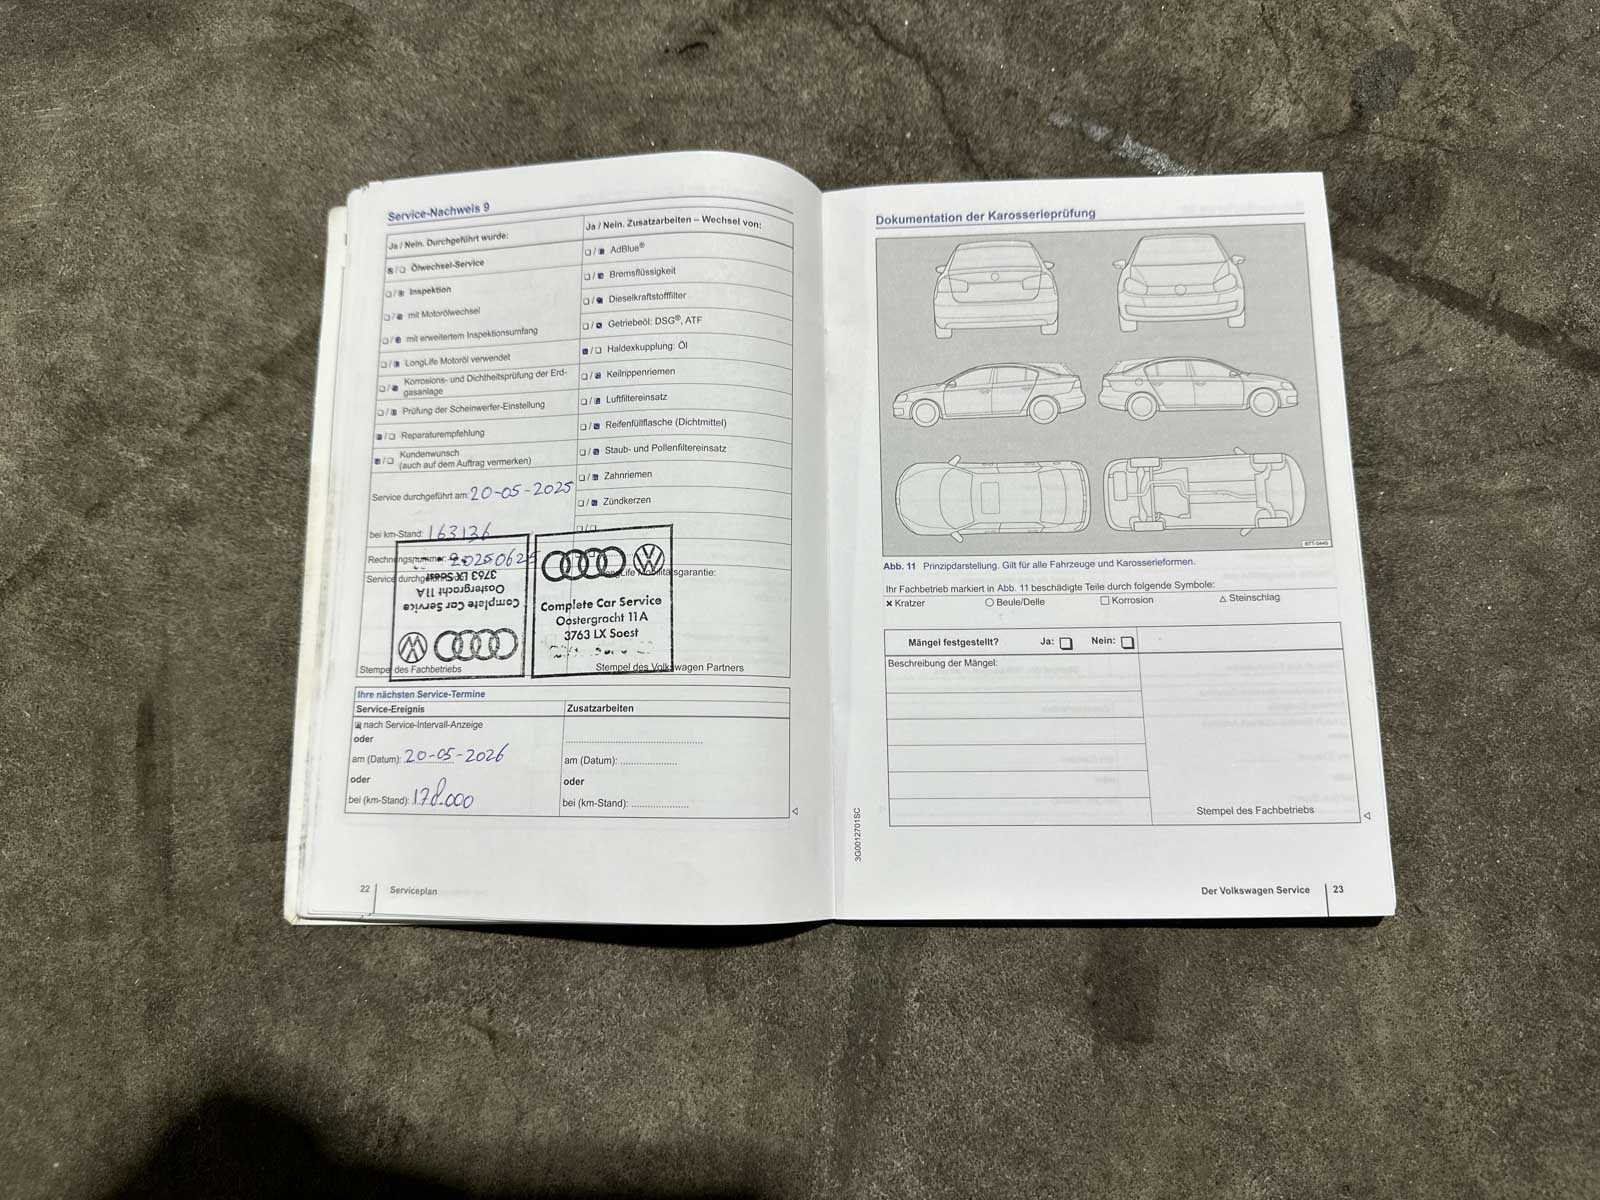 Service-Nachweis 9
Ja / Nein. Durchgeführt wurde:
Ölwechsel-Service
Inspektion
mit Motorölwechsel
mit erweitertem Inspektionsumfang
LongLife Motoröl verwendet
Korrosions- und Dichtheitsprüfung der Erd-
gasanlage
Prüfung der Scheinwerfer-Einstellung
Reparaturempfehlung
Kundenwunsch
(auch auf dem Auftrag vermerken)
Service durchgeführt am: 20-05-2025
bei km-Stand: 163136
Rechnungsnummer: 20250625
Ja / Nein. Zusatzarbeiten – Wechsel von:
AdBlue®
Bremsflüssigkeit
Dieselkraftstofffilter
Getriebeöl: DSG®, ATF
Haldexkupplung: Öl
Keilrippenriemen
Luftfiltereinsatz
Reifenfüllflasche (Dichtmittel)
Staub- und Pollenfiltereinsatz
Zahnriemen
Zündkerzen
Complete Car Service
Oostergracht 11A
3763 LX Soest
Stempel des Fachbetriebs
LongLife Mobilitätsgarantie:
Complete Car Service
Oostergracht 11A
3763 LX Soest
Stempel des Volkswagen Partners
Ihre nächsten Service-Termine
Service-Ereignis
nach Service-Intervall-Anzeige
oder
am (Datum): 20-05-2026
oder
bei (km-Stand): 178.000
Zusatzarbeiten
am (Datum):
oder
bei (km-Stand):
22 Serviceplan
Dokumentation der Karosserieprüfung
BTT-0445
Abb. 11 Prinzipdarstellung. Gilt für alle Fahrzeuge und Karosserieformen.
Ihr Fachbetrieb markiert in Abb. 11 beschädigte Teile durch folgende Symbole:
× Kratzer ○ Beule/Delle □ Korrosion △ Steinschlag
Mängel festgestellt? Ja: Nein:
Beschreibung der Mängel:
Stempel des Fachbetriebs
3G0012701SC
Der Volkswagen Service 23